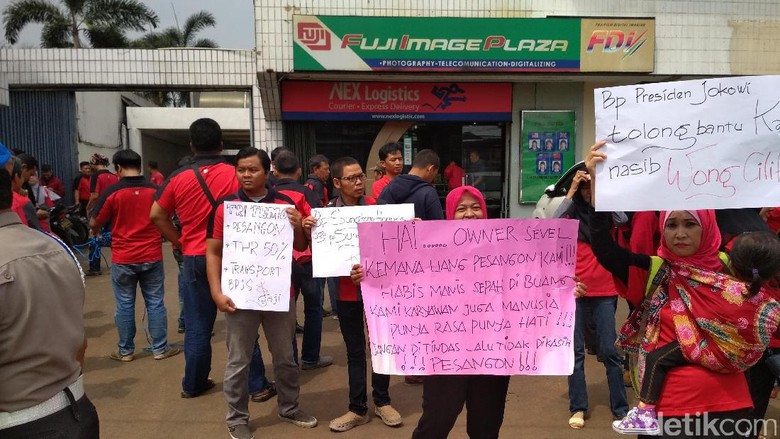 FUJI
FUJI IMAGE PLAZA
• PHOTOGRAPHY • TELECOMMUNICATION • DIGITALIZING
FDi
NEX Logistics
Courier • Express Delivery
www.nexlogistic.com
Bp Presiden Jokowi
tolong bantu
nasib Wong Cili
PESANGON
+ THR 50%
+ TRANSPORT
BPJS
Gaji
HAI ...... OWNER SEVEL
KEMANA UANG PESANGON KAMI !!!
HABIS MANIS SEPAH DI BUANG
KAMI KARYAWAN JUGA MANUSIA
PUNYA RASA PUNYA HATI !!!
JANGAN DITINDAS LALU TIDAK DIKASIH
!!! PESANGON !!!
detikcom